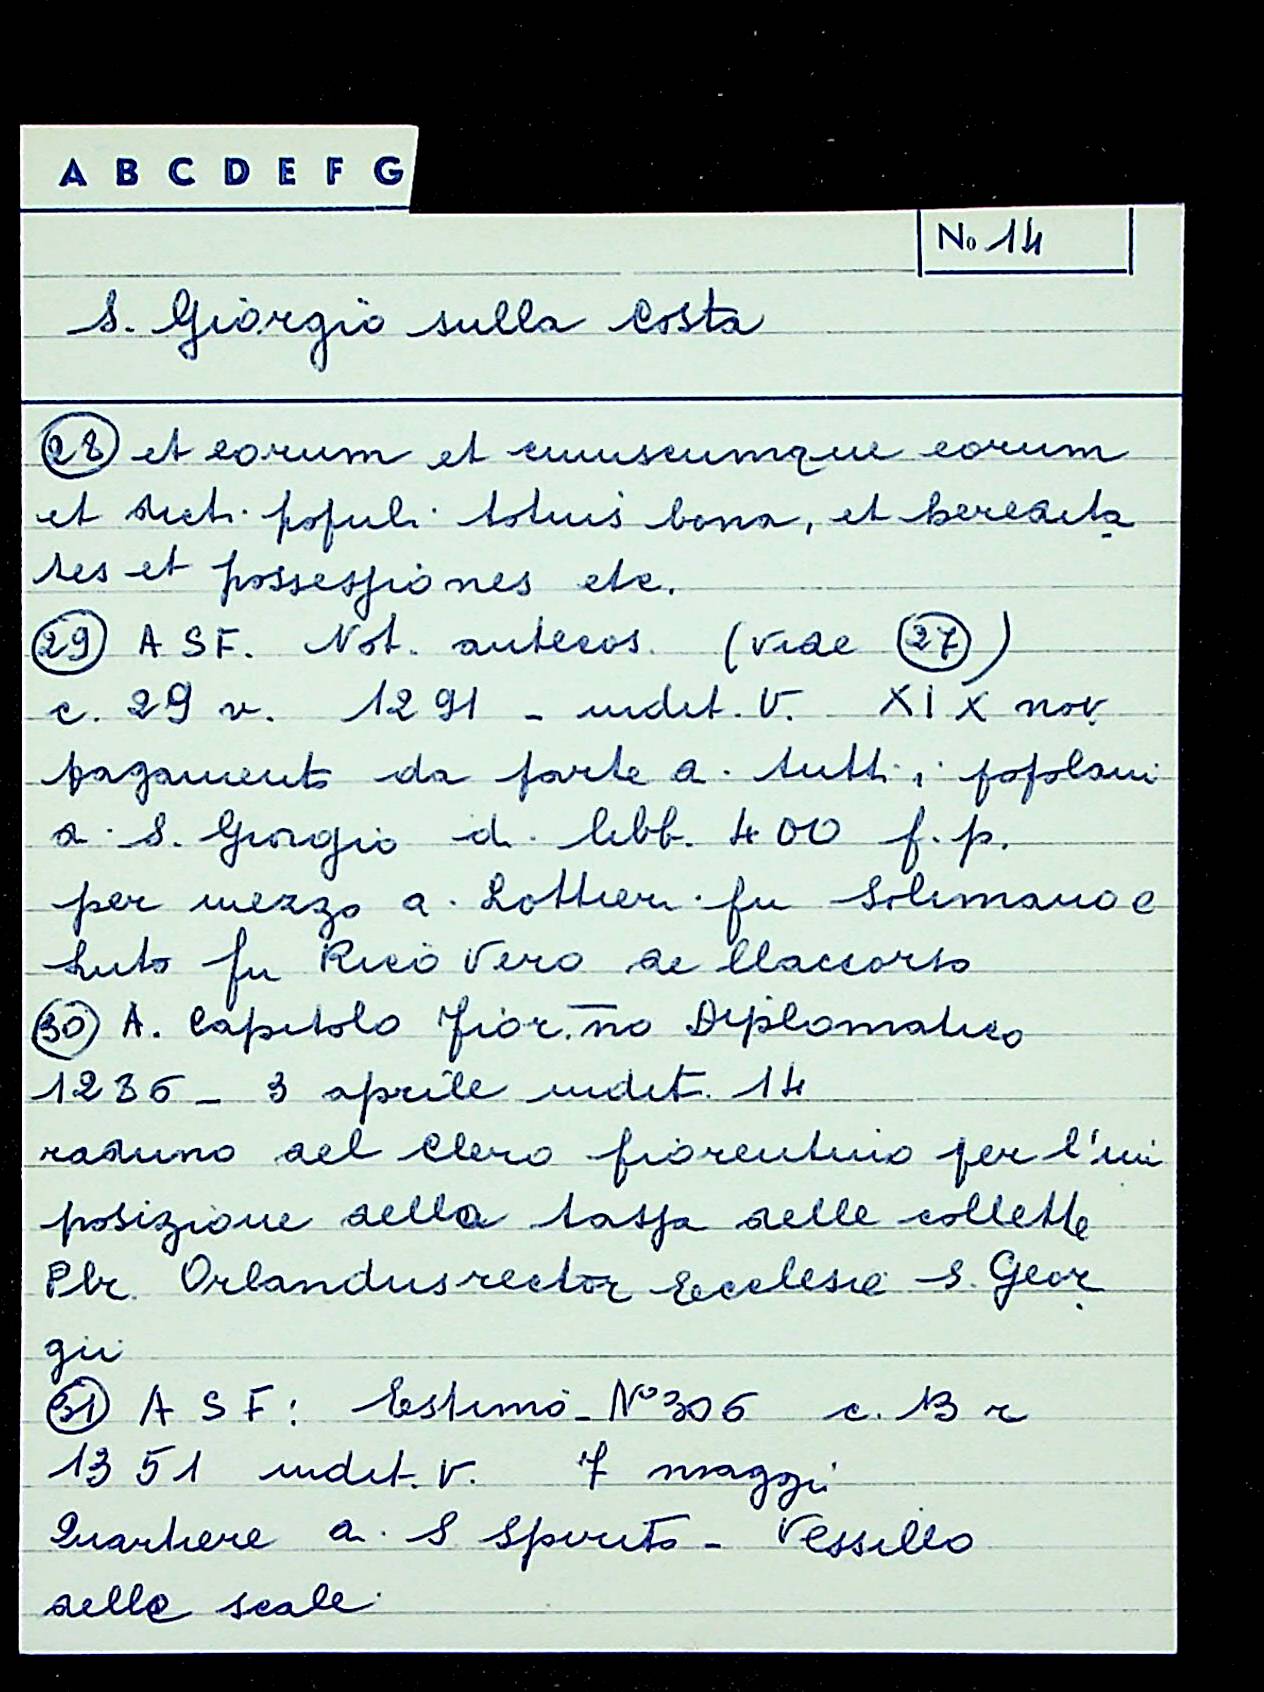 A B C D E F G
No 14
S. Giorgio sulla Costa
(28) et eorum et cuiuscumque eorum
et dicti populi totius bona, et heredita
tes et possessiones etc.
(29) A S F. Not. antecos. (vide (27))
c. 29 v. 1291 - indit. V. XIX nov.
pagamento da parte di tutti i popolani
di S. Giorgio di libb. 400 f. p.
per mezzo di Lottieri fu Solimano e
Luto fu Ricovero de
(30) A. Capitolo Fior. no Diplomatico
1236 - 3 aprile indit. 14
raduno del Clero fiorentino per l'im
posizione della tassa delle collette
Pbr. Orlandus rector Ecclesie S. Geor
gii
(31) A S F: Estimo - No 306 c. 13 r
1351 indit. V. 7 maggi
Quartiere di S Spirito - Vessillo
delle scale